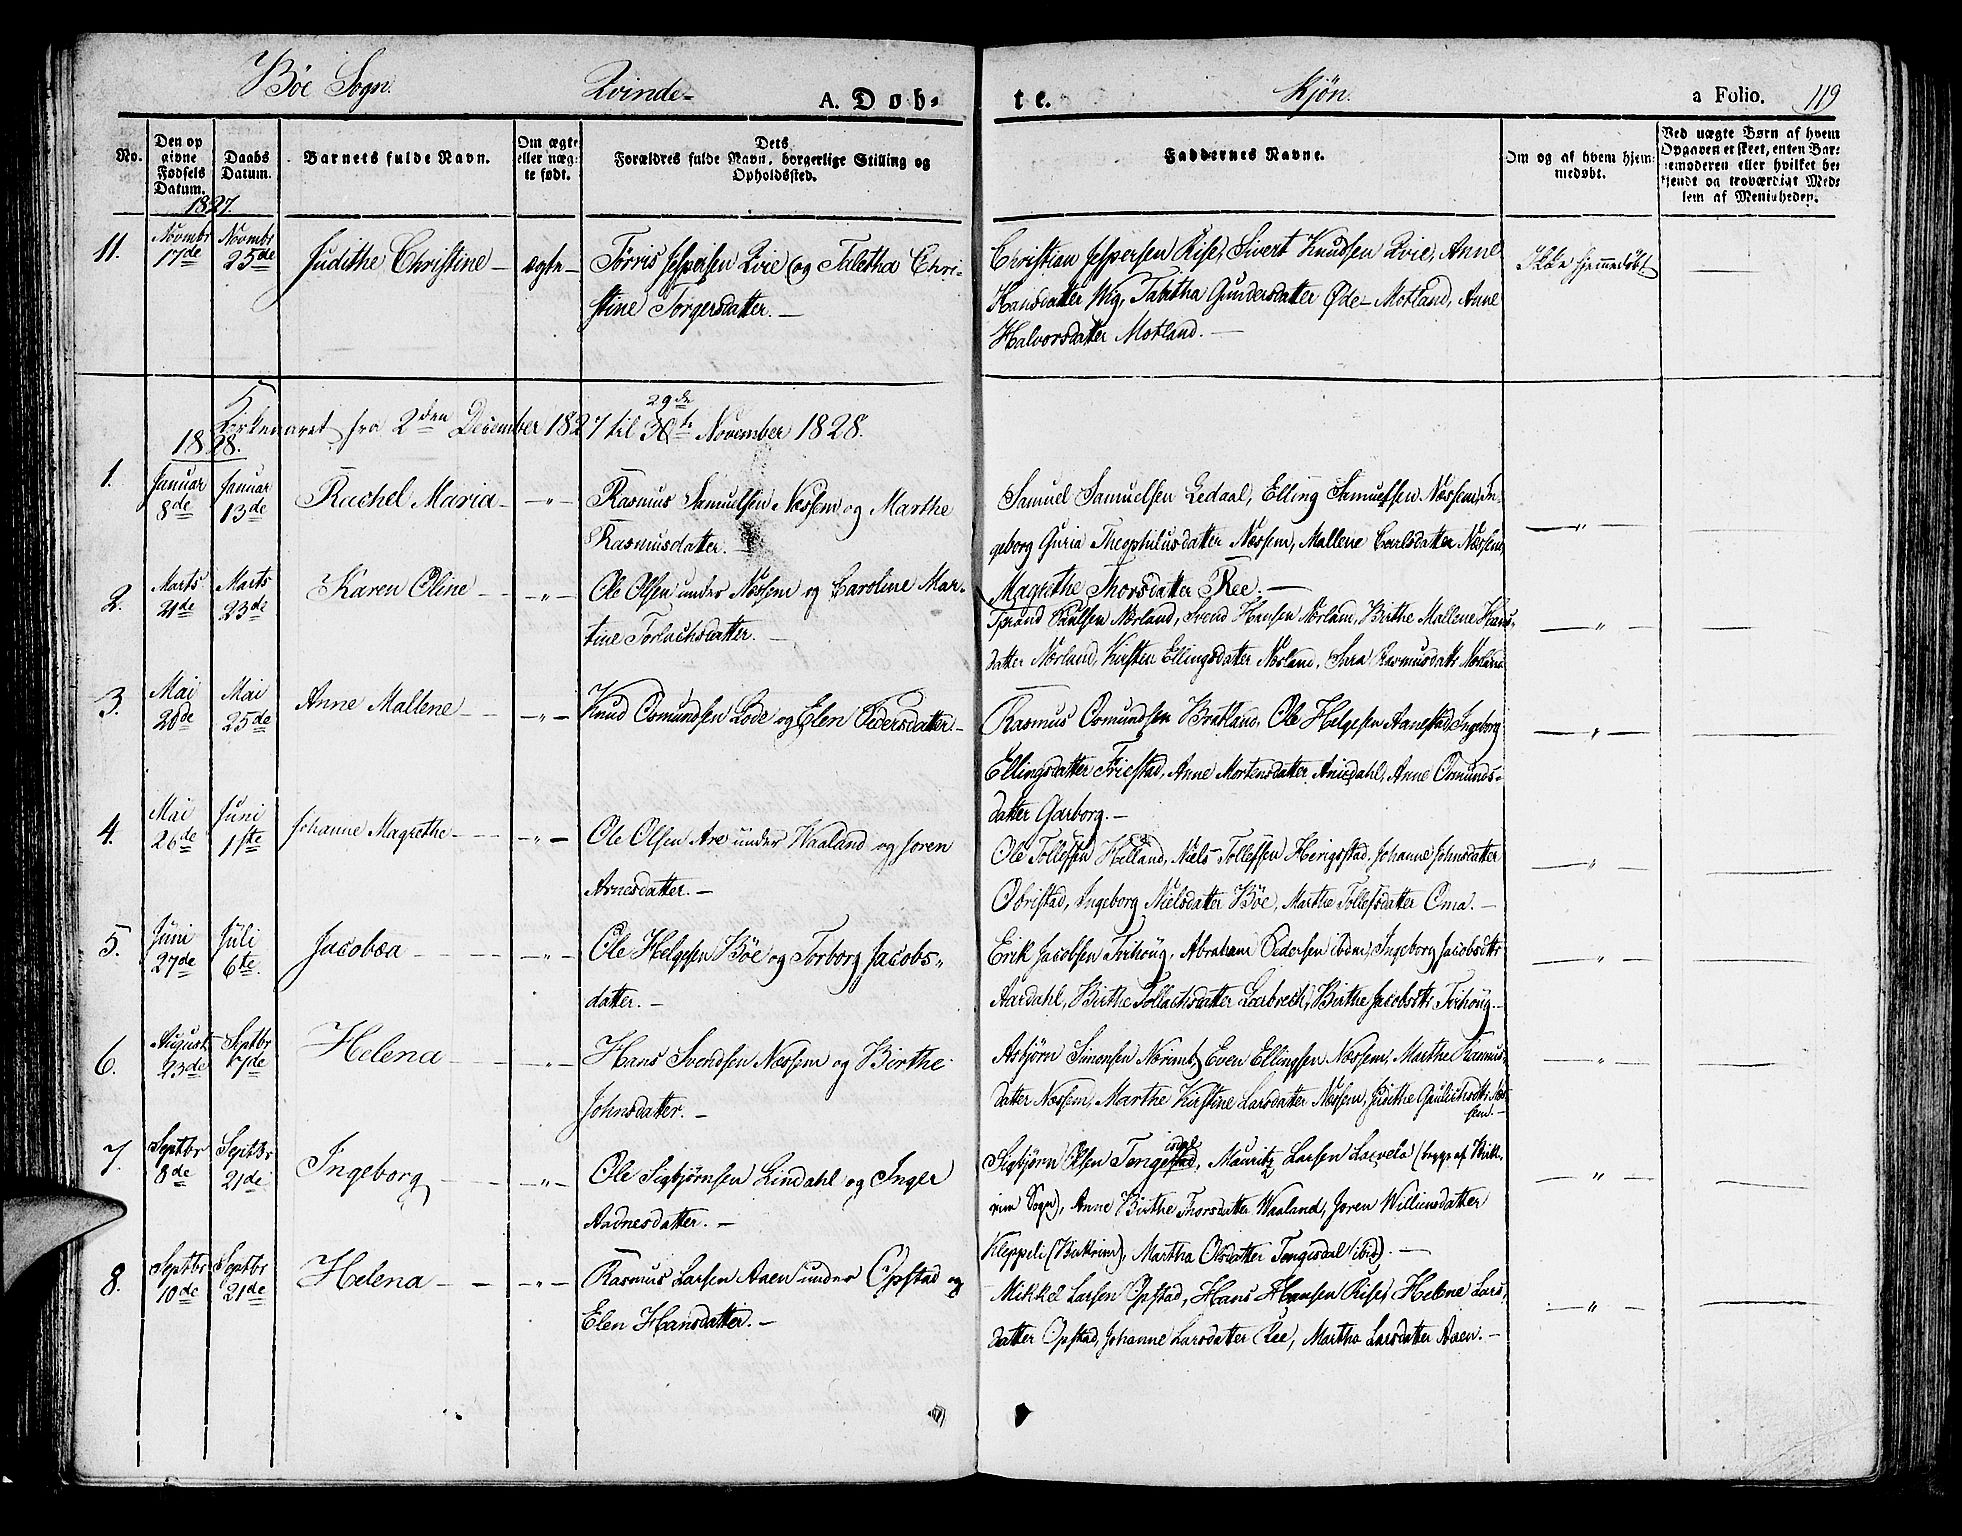 Bøe Sogn. Qvinde- A. Døb- te. Kjøn. a Folio. 119
No.
Den op
givne
Fødsels
Datum.
Daabs
Datum.
Barnets fulde Navn.
Om ægte
eller uæg-
te født.
Dets
Forældres fulde Navn, borgerlige Stilling og
Opholdssted.
Faddernes Navne.
Om og af hvem hjem-
medøbt.
Ved uægte Børn af hvem
Opgaven er skeet, enten Bar-
nemoderen eller hvilket be-
kjendt og troværdigt Med-
lem af Menigheden.
1827.
11. Novmbr 17de Novmbr 25de Judithe Christine - ægte - Tørris Jespersen Qvie (og Taletha Chri-
stine Torgersdatter. -
Christian Jespersen Rise, Sivert Knudsen Qvie, Anne
Hansdatter Wig, Tabitha Gundersdatter Øde-Motland, Anne
Halvorsdatter Motland. -
Ikke hjemmedøbt
Kirkeaaret fra 2den December 1827 til 30te 29de November 1828.
1828.
1. Januar 8de Januar 13de Rachel Maria - " - Rasmus Samuelsen Næssem og Marthe
Rasmusdatter. -
Samuel Samuelsen Ledaal, Elling Samuelsen Næssem, In-
geborg Guria Theophilusdatter Næssem, Mallene Carlsdatter Næssem,
Magrethe Thorsdatter Ree. -
- " -
2. Marts 21de Marts 23de Karen Oline - " - Ole Olsen under Næssem og Caroline Mar-
tine Torlachsdatter. -
Tørand Paulsen Nærland, Svend Hansen Nærland, Birthe Mallene Hans-
datter Nærland, Kirsten Ellingsdatter Næsland, Rasmusdatt:
- " -
3. Mai 20de Mai 25de Anne Mallene - " - Knud Osmundsen Lode og Elen Pedersdatter. -
Rasmus Osmundsen Bratland, Ole Helgesen Aanestad, Ingeborg
Ellingsdatter Friestad, Anne Mortensdatter Anisdahl, Anne Osmunds-
datter Garborg. -
- " -
4. Mai 26de Juni 1ste Johanne Magrethe - " - Ole Olsen Are under Waaland og Joren
Arnesdatter. -
Ole Tollefsen Hilland, Niels Tollefsen Herigstad, Johanne Johnsdatter
Obrestad, Ingeborg Nielsdatter Bøe, Marthe Tollefsdatter Oma. -
- " -
5. Juni 27de Juli 6te. Jacobea - " - Ole Helgesen Bøe og Torborg Jacobs-
datter. -
Erik Jacobsen Tvihoug, Abraham Pedersen ibdm, Ingeborg Jacobsdttr
Aardahl, Birthe Tollachsdatter Laabreck, Birthe Jacobsdtr Tvihoug. -
- " -
6. August 23de Septbr 7de Helena - " - Hans Svendsen Næssem og Birthe
Johnsdatter. -
Asbjørn Simonsen Norum, Even Ellingsen Næssem, Marthe Rasmus-
datter Næssem, Marthe Kirstine Larsdatter Næssem, Judithe Gaulichsdttr Næs-
sem. -
- " -
7. Septbr 8de Septbr 21de Ingeborg - " - Ole Sigbjørnsen Lindahl og Inger
Aadnesdatter. -
Sigbjørn Olsen Tengestad isdal, Mauritz Larsen Lavela (begge af Birke-
rim Sogn), Anne Birthe Thorsdatter Waaland, Joren Williumsdatter
Kleppeli (Birkrim), Martha Olsdatter Tengisdal (ibid). -
- " -
8. Septbr 10de Septbr 21de Helena - " - Rasmus Larsen Aaen under Opstad og
Elen Hansdatter. -
Mikkel Larsen Opstad, Hans Hansen Rise, Helene Lars-
datter Opstad, Johanne Larsdatter Ree, Martha Larsdatter Aaen. -
- " -